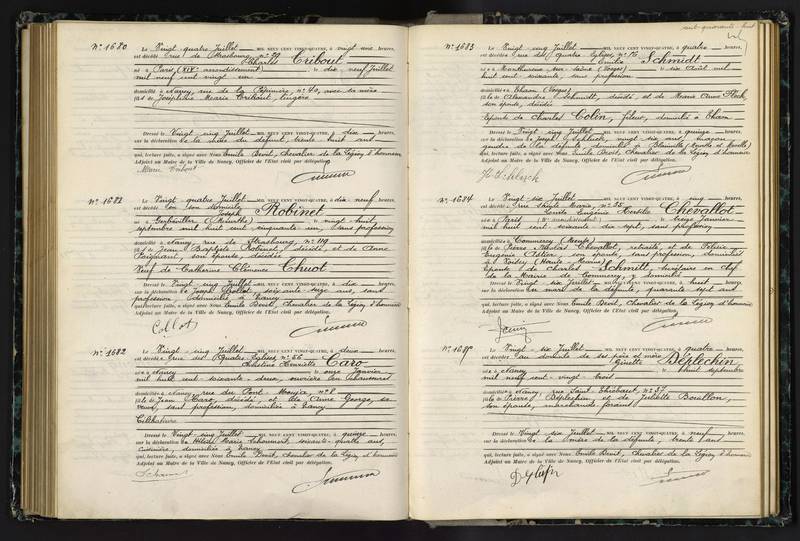 N° 1680 Le Vingt quatre Juillet MIL NEUF CENT VINGT-QUATRE, à vingt une heures,
est décédé rue de Strasbourg, n° 79
Charles Tribout
né à Paris, (XIVe arrondissement) le dix neuf Juillet
mil neuf cent vingt un
domicilié à Nancy, rue de la Pépinière, n° 40, avec sa mère
fils de Joséphine Marie Tribout, lingère
Dressé le Vingt cinq Juillet MIL NEUF CENT VINGT-QUATRE, à dix heures,
sur la déclaration de la mère du défunt, trente huit ans
qui, lecture faite, a signé avec Nous Emile Bevit, Chevalier de la Légion d'honneur
Adjoint au Maire de la Ville de Nancy, Officier de l'Etat civil par délégation.
Marie Tribout
N° 1681 Le Vingt quatre Juillet MIL NEUF CENT VINGT-QUATRE, à dix neuf heures,
est décédé en son domicile
Joseph Robinet
né à Gerbéviller (Meurthe) le vingt huit
septembre mil huit cent cinquante un, sans profession
domicilié à Nancy, rue de Strasbourg, n° 119
fils de Jean Baptiste Robinet, décédé, et de Anne
son épouse, décédée
Veuf de Catherine Clémence Thuot
Dressé le Vingt cinq Juillet MIL NEUF CENT VINGT-QUATRE, à dix heures,
sur la déclaration de Joseph Collot, soixante seize ans, sans
profession, domicilié à Nancy
qui, lecture faite, a signé avec Nous Emile Bevit, Chevalier de la Légion d'honneur
Adjoint au Maire de la Ville de Nancy, Officier de l'Etat civil par délégation.
Collot
N° 1682 Le Vingt cinq Juillet MIL NEUF CENT VINGT-QUATRE, à deux heures,
est décédée rue des Quatre Eglises, n° 56
Henriette Caro
née à Nancy le onze Janvier
mil huit cent soixante deux, ouvrière en chaussures
domiciliée à Nancy, rue du Pont Mouja n° 8
fille de Jean Caro, décédé, et de Anne George, sa
veuve, sans profession, domiciliée à Nancy
Célibataire
Dressé le Vingt cinq Juillet MIL NEUF CENT VINGT-QUATRE, à quinze heures,
sur la déclaration de Marie soixante quatre ans,
cuisinière, domiciliée à Nancy
qui, lecture faite, a signé avec Nous Emile Bevit, Chevalier de la Légion d'honneur
Adjoint au Maire de la Ville de Nancy, Officier de l'Etat civil par délégation.
N° 1683 Le Vingt cinq Juillet MIL NEUF CENT VINGT-QUATRE, à quatre heures,
est décédée rue des Quatre Eglises, n°
Emilie Schmidt
née à (Vosges) le dix Août mil
huit cent soixante, sans profession
domiciliée à Thaon (Vosges)
fille de Alexandre Schmidt, décédé, et de Marie Anne
son épouse, décédée
Epouse de Charles Colin, fileur, domicilié à Thaon
Dressé le Vingt cinq Juillet MIL NEUF CENT VINGT-QUATRE, à quinze heures,
sur la déclaration de Joseph vingt six ans, maçon
gendre de la défunte, domicilié à Blainville (Meurthe et Moselle)
qui, lecture faite, a signé avec Nous Emile Bevit, Chevalier de la Légion d'honneur
Adjoint au Maire de la Ville de Nancy, Officier de l'Etat civil par délégation.
N° 1684 Le Vingt six Juillet MIL NEUF CENT VINGT-QUATRE, à cinq heures,
est décédée rue Sainte Marie, n° 35
Eugénie Chevallot
née à Paris ( arrondissement) le treize Janvier
mil huit cent soixante dix sept, sans profession
domiciliée à Commercy (Meuse)
fille de Pierre Nicolas Chevallot, retraité, et de
Eugénie son épouse, sans profession, domiciliés
à Voisey (Haute Marne)
Epouse de Charles Schmitt, secrétaire en chef
de la Mairie de Commercy, y domicilié
Dressé le Vingt six Juillet MIL NEUF CENT VINGT-QUATRE, à huit heures,
sur la déclaration du mari de la défunte, quarante sept ans
qui, lecture faite, a signé avec Nous Emile Bevit, Chevalier de la Légion d'honneur
Adjoint au Maire de la Ville de Nancy, Officier de l'Etat civil par délégation.
N° 1685 Le Vingt six Juillet MIL NEUF CENT VINGT-QUATRE, à quatre heures,
est décédée au domicile de ses père et mère
Ginette Déplechin
née à Nancy le huit septembre
mil neuf cent vingt trois
domiciliée à Nancy, rue Saint Thiébaut, n° 37
fille de Pierre Déplechin, et de Juliette Bouillon,
son épouse, marchands forains
Dressé le Vingt six Juillet MIL NEUF CENT VINGT-QUATRE, à neuf heures,
sur la déclaration de la mère de la défunte, trente ans
qui, lecture faite, a signé avec Nous Emile Bevit, Chevalier de la Légion d'honneur
Adjoint au Maire de la Ville de Nancy, Officier de l'Etat civil par délégation.